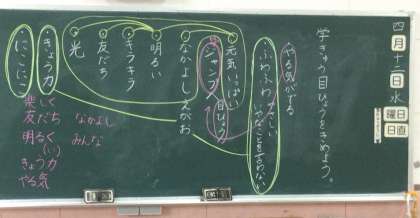 四月十二日水曜日
日直
学きゅう目ひょうをきめよう。
やる気がでる
・ふわふわ
いやなことを言わない
元気いっぱい
ジャンプ
目ひょう
なかよし
えがお
明るい
キラキラ
友だち
光
・きょう力
・にこにこ
楽しく
友だち
なかよし
明るく
(い)
みんな
きょう力
やる気